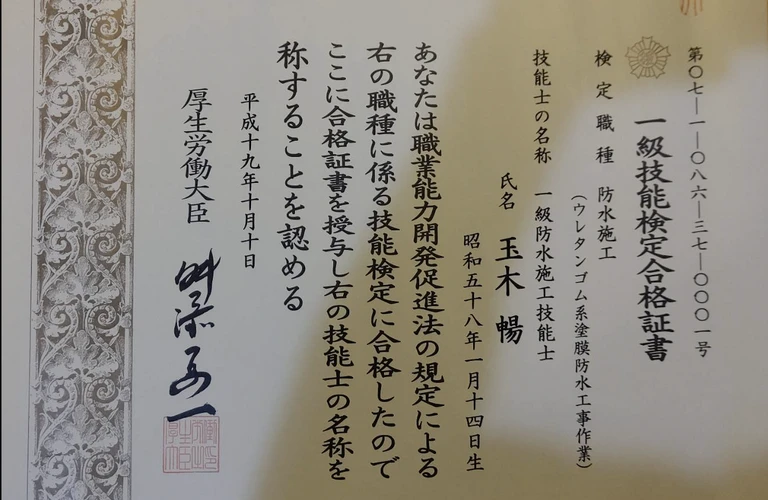 第〇七―一―〇八六―三七―〇〇〇一号
一級技能検定合格証書
検定職種 防水施工
(ウレタンゴム系塗膜防水工事作業)
技能士の名称 一級防水施工技能士
氏名 玉木 暢
昭和五十八年一月十四日生
あなたは職業能力開発促進法の規定による
右の職種に係る技能検定に合格したので
ここに合格証書を授与し右の技能士の名称を
称することを認める
平成十九年十月十日
厚生労働大臣 舛添要一